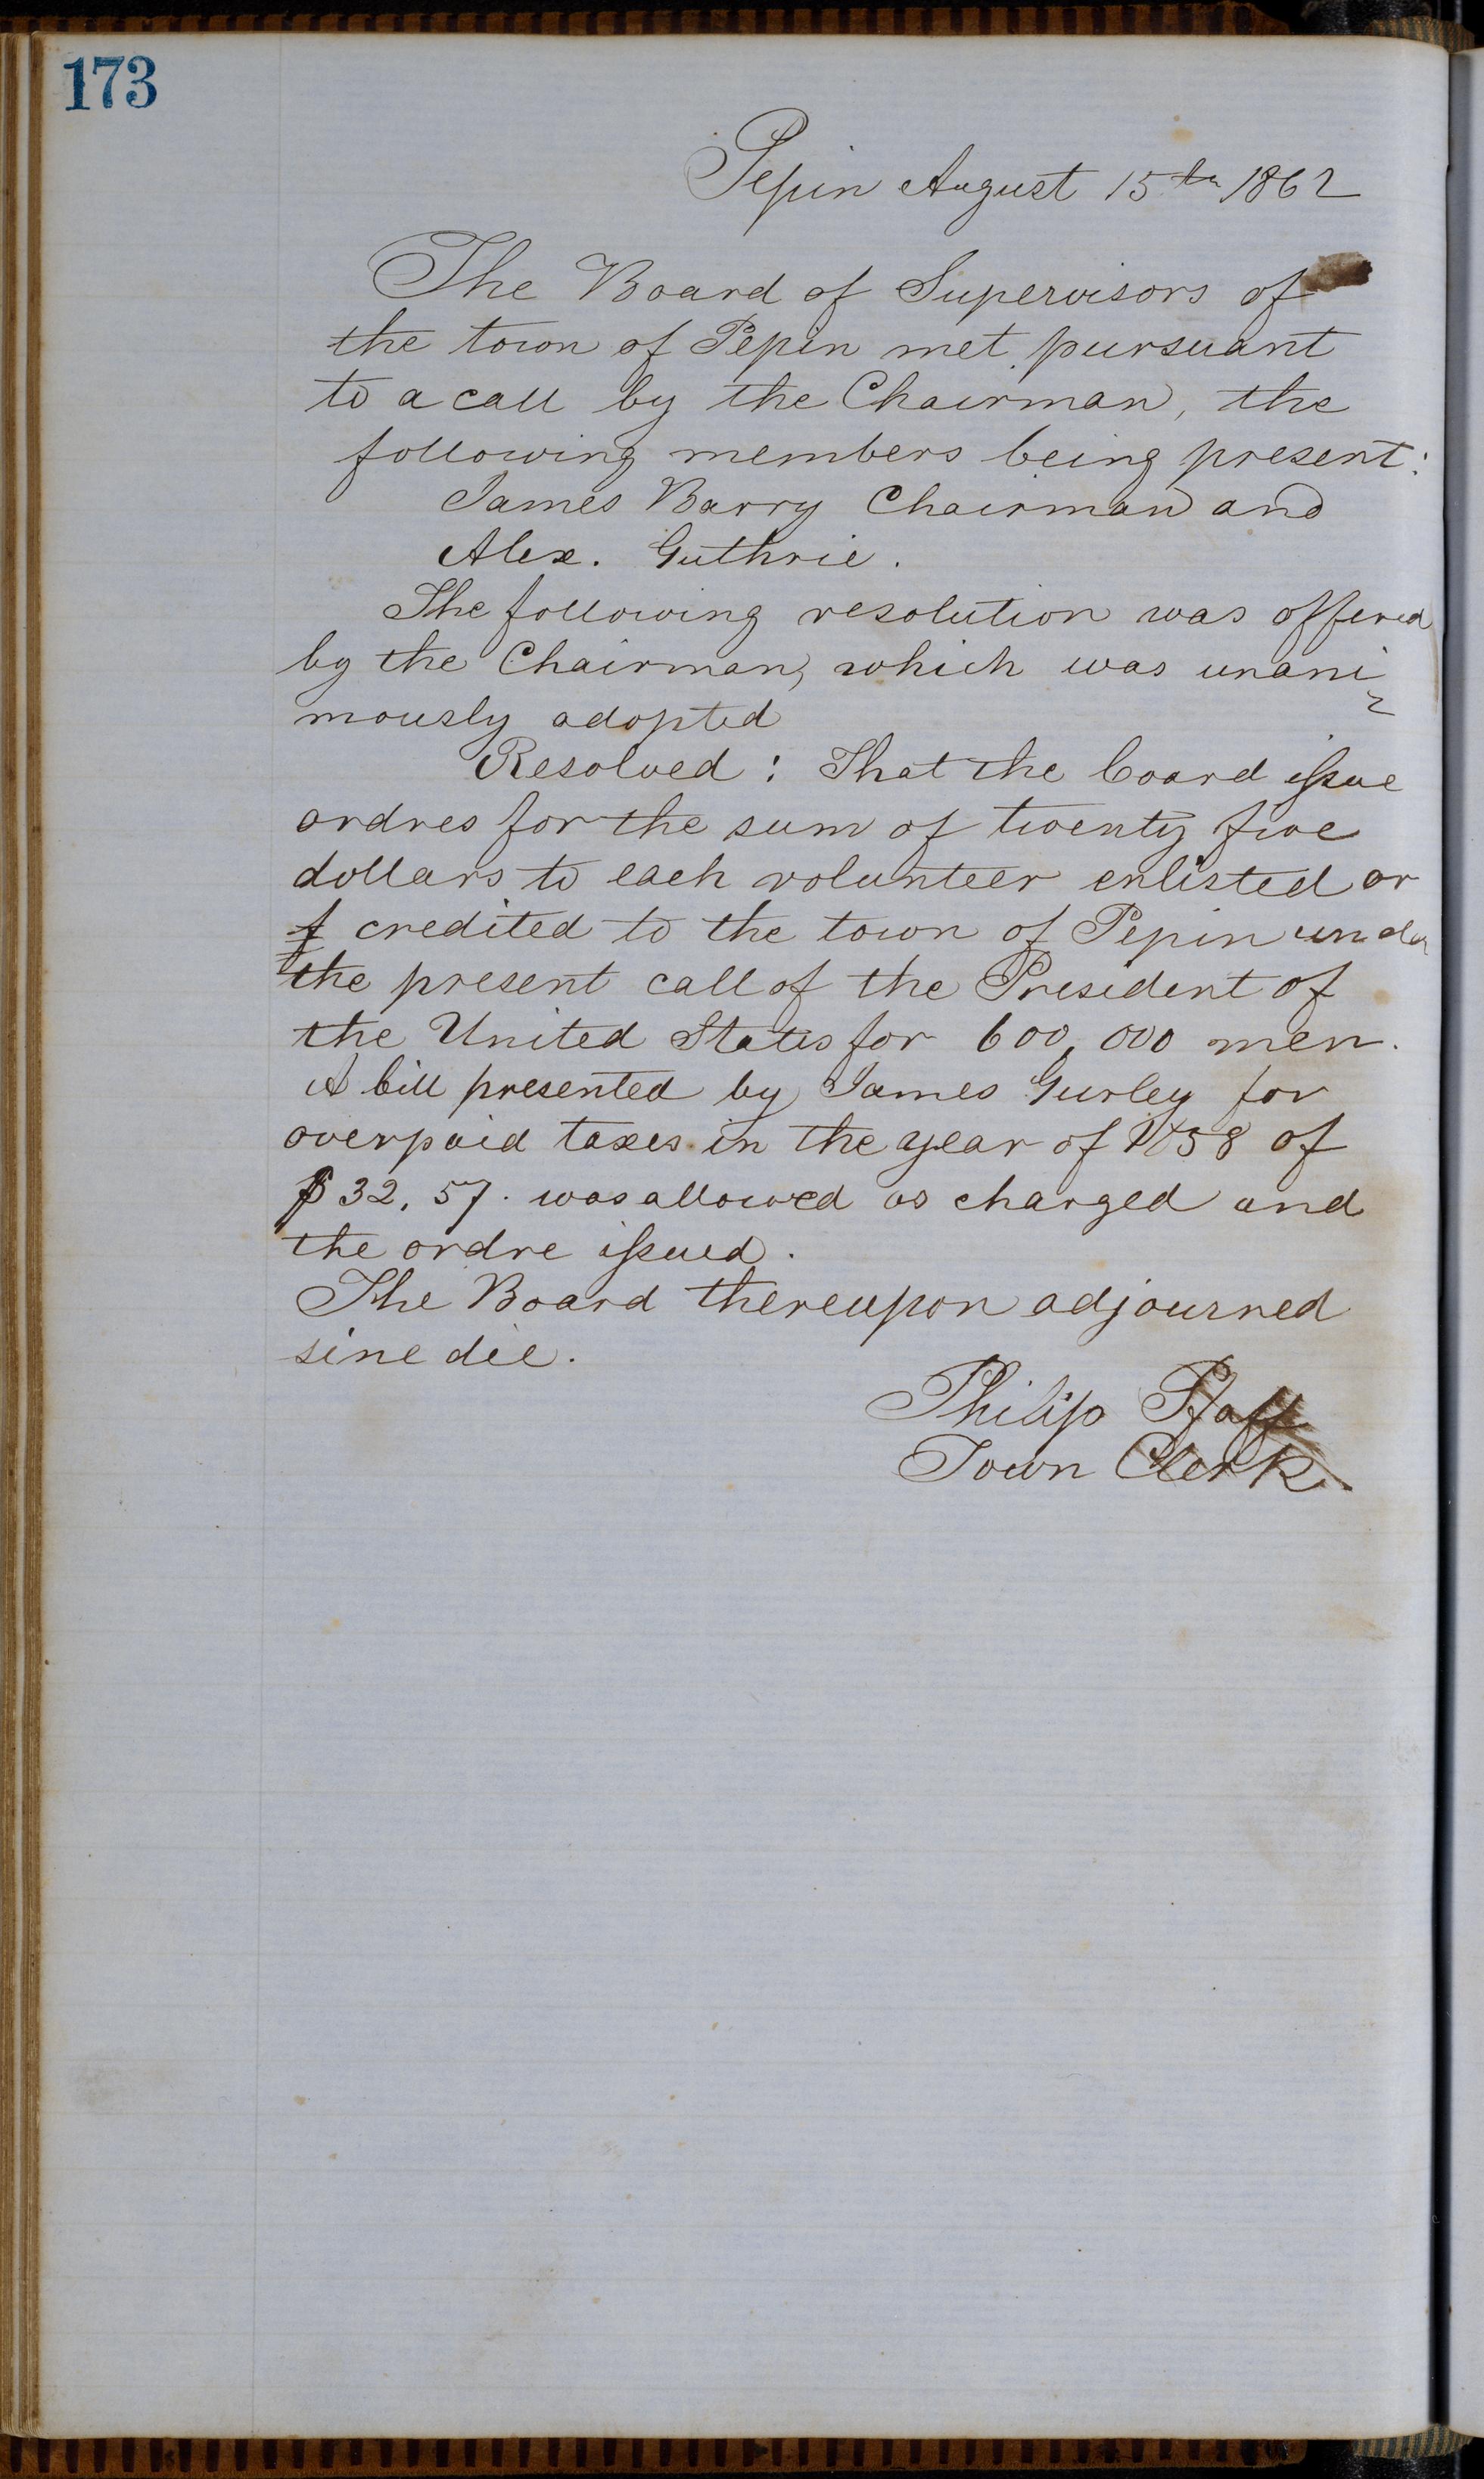 173
Pepin August 15th 1862
The Board of Supervisors of
the town of Pepin met pursuant
to a call by the Chairman, the
following members being present:
James Barry Chairman and
Alex. Guthrie.
The following resolution was offered
by the Chairman, which was unani-
mously adopted
Resolved: That the board issue
ordres for the sum of twenty five
dollars to each volunteer enlisted or
credited to the town of Pepin under
the present call of the President of
the United States for 600,000 men.
A bill presented by James Gurley for
overpaid taxes in the year of 1858 of
$32,57. was allowed as charged and
the ordre issued.
The Board thereupon adjourned
sine die.
Philip Pfaff
Town Clerk.